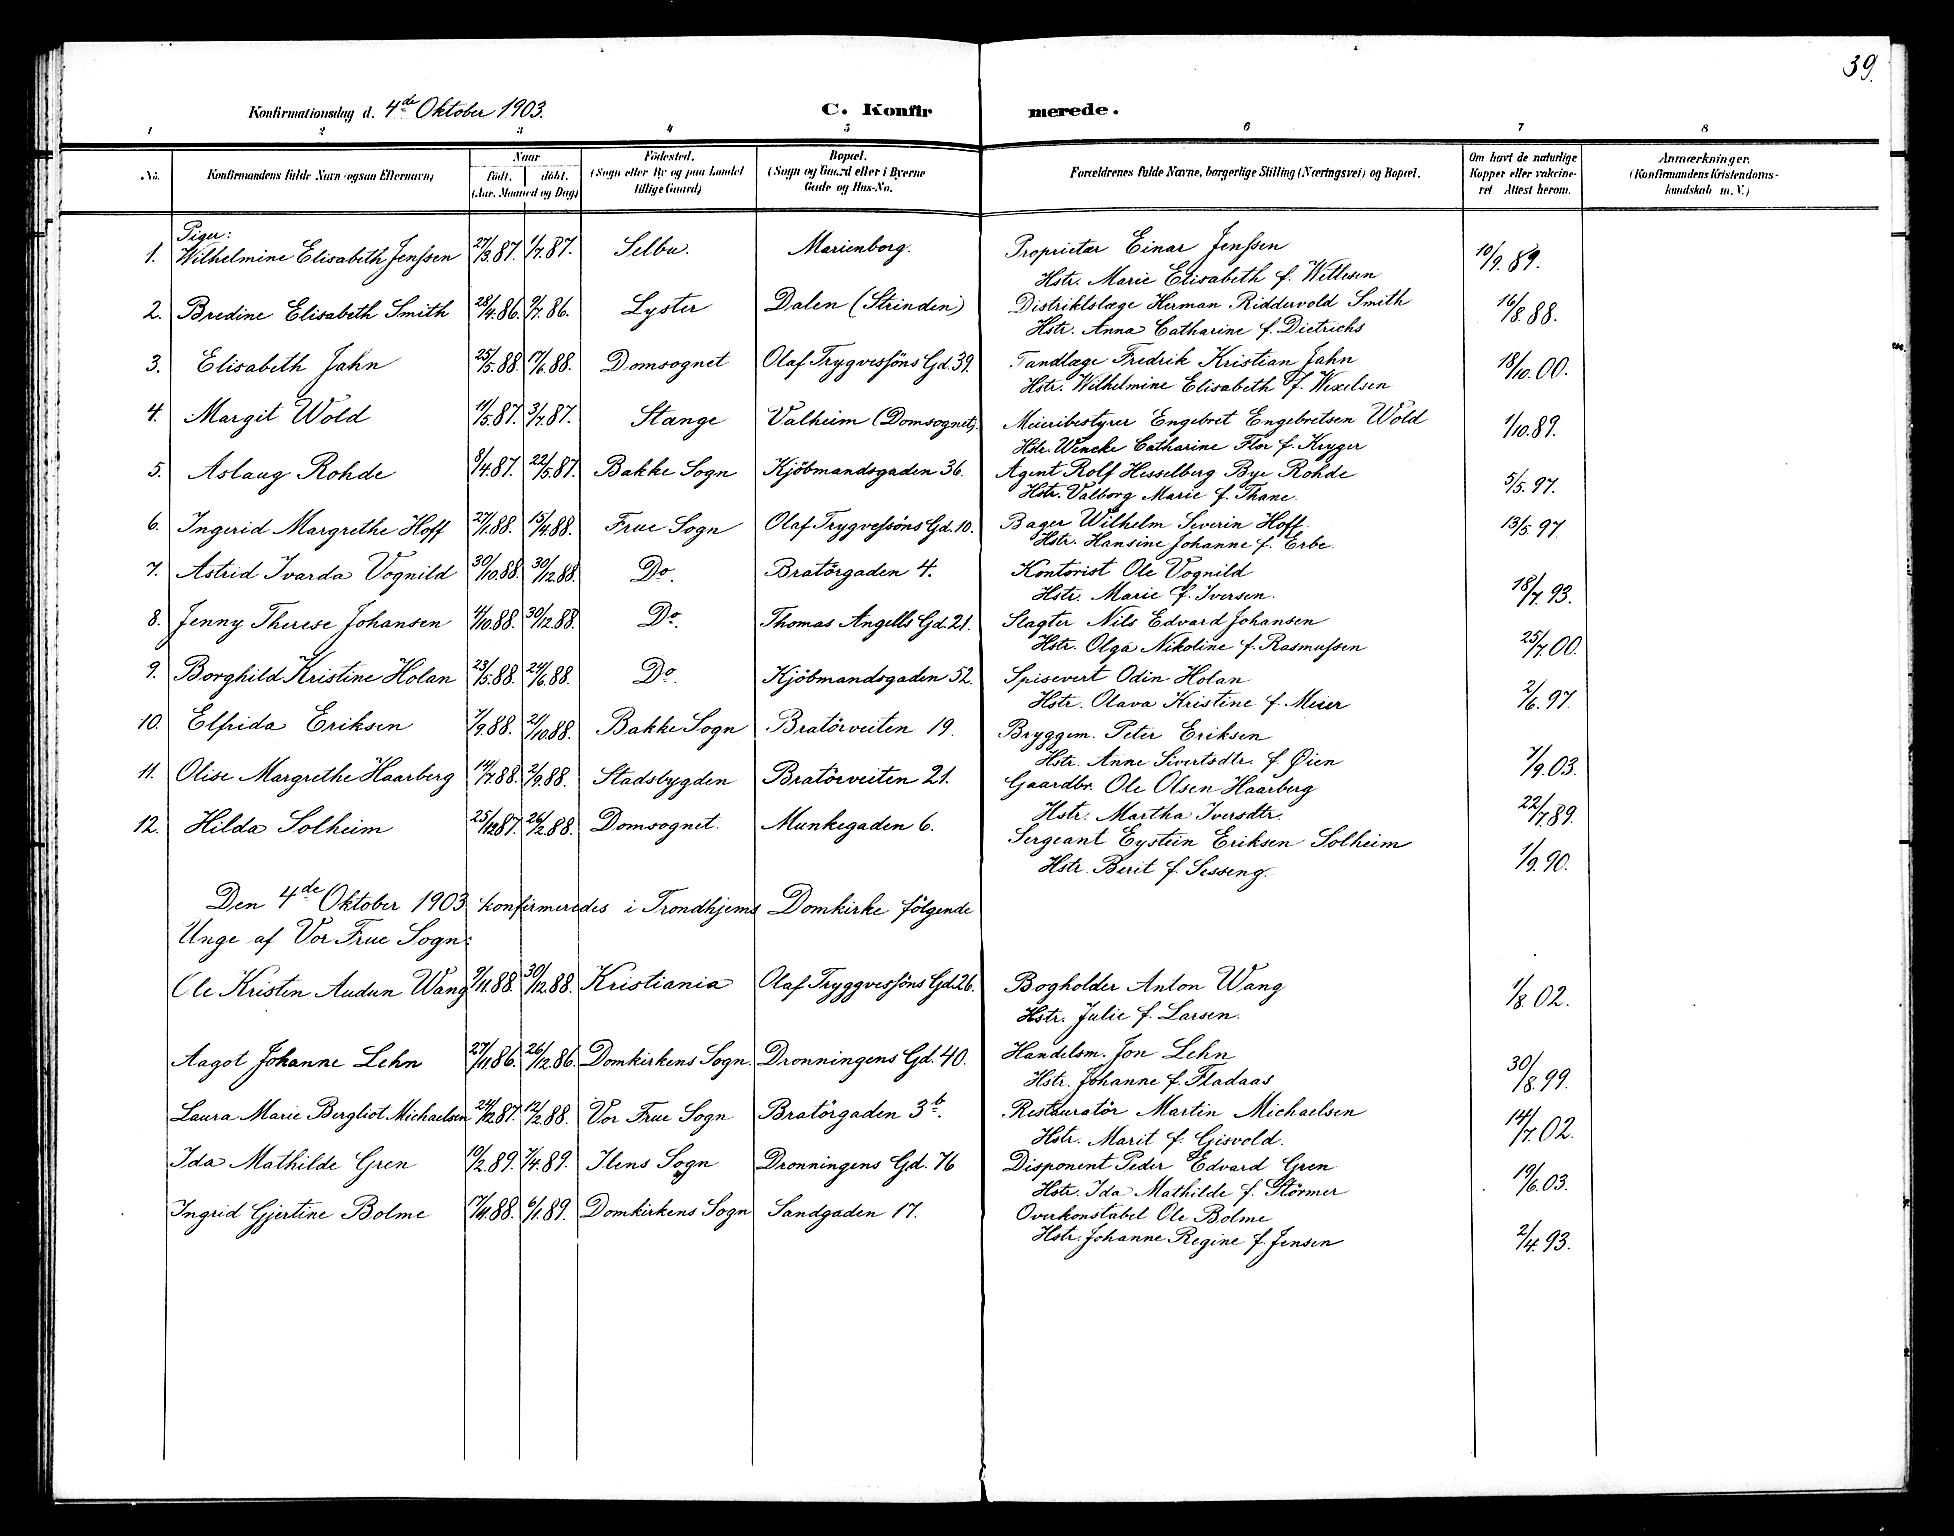 39.
Konfirmationsdag d. 4de Oktober 1903. C. Konfirmerede.
1 2 3 4 5 6 7 8
No. Konfirmandens fulde Navn (ogsaa Efternavn) Naar født. døbt. (Aar, Maaned og Dag) Fødested. (Sogn eller By og paa Landet tillige Gaard) Bopæl. (Sogn og Gaard eller i Byerne Gade og Hus-No. Forældrenes fulde Navne, borgerlige Stilling (Næringsvei) og Bopæl. Om havt de naturlige Kopper eller vaccineret Attest herom. Anmærkninger. (Konfirmandens Kristendomskundskab m. V.)
Piger:
1. Wilhelmine Elisabeth Jenssen 27/3.87. 1/7.87. Selbu. Marienborg. Proprietær Einar Jenssen 10/9.89.
Hstr. Marie Elisabeth f. Wettesen
2. Bredine Elisabeth Smith 28/4.86. 9/7.86. Lyster Dalen (Strinden) Distriktslæge Herman Riddervold Smith 16/8.88.
Hstr. Anna Catharine f. Dietrichs
3. Elisabeth Jahn 25/5.88. 17/6.88. Domsognet Olaf Trygvessöns Gd. 39. Tandlæge Fredrik Kristian Jahn 18/10.00.
Hstr. Wilhelmine Elisabeth f. Wexelsen
4. Margit Wold 11/5.87. 3/7.87. Stange Valheim (Domsognet). Meieribestyrer Engebret Engebretsen Wold 1/10.89.
Hstr. Wencke Catharine Flor f. Kryger
5. Aslaug Rohde 8/4.87. 22/5.87. Bakke Sogn Kjöbmandsgaden 36. Agent Rolf Hesselberg Bye Rohde 5/5.97.
Hstr. Valborg Marie f. Thane.
6. Ingerid Margrethe Hoff 27/1.88. 15/4.88. Frue Sogn Olaf Trygvessöns Gd. 10. Bager Wilhelm Severin Hoff. 13/5.97.
Hstr. Hansine Johanne f. Erbe.
7. Astrid Ivarda Vognild 30/10.88. 30/12.88. Do. Bratörgaden 4. Kontorist Ole Vognild 18/7.93.
Hstr. Marie f. Iversen.
8. Jenny Therese Johansen 4/10.88. 30/12.88. Do. Thomas Angells Gd. 21. Slagter Nils Edvard Johansen 25/7.00.
Hstr. Olga Nikoline f. Rasmussen
9. Borghild Kristine Holan 23/5.88. 24/6.88. Do. Kjöbmandsgaden 52. Spisevert Odin Holan 2/6.97.
Hstr. Olava Kristine f. Meier
10. Elfrida Eriksen 7/9.88. 21/10.88. Bakke Sogn Bratörveiten 19. Bryggem. Peter Eriksen 7/9.03.
Hstr. Anne Sivertsdtr. f. Øien
11. Olise Margrethe Haarberg 14/7.88. 2/9.88. Stadsbygden Bratörveiten 21. Gaardbr. Ole Olsen Haarberg 22/7.89.
Hstr. Martha Iversdtr.
12. Hilda Solheim 25/12.87. 26/2.88. Domsognet. Munkegaden 6. Sergeant Eystein Eriksen Solheim 1/9.90.
Hstr. Berit f. Sesseng.
Den 4de Oktober 1903 konfirmeredes i Trondhjems Domkirke følgende
Unge af Vor Frue Sogn:
Ole Kristen Audun Wang 9/11.88. 30/12.88. Kristiania Olaf Tryggvessöns Gd. 26. Bogholder Anton Wang 1/8.02.
Hstr. Julie f. Larsen.
Aagot Johanne Lehn 27/11.86. 26/12.86. Domkirkens Sogn. Dronningens Gd. 40. Handelsm. Jon Lehn 30/8.99.
Hstr. Johanne f. Fladaas
Laura Marie Bergliot Michaelsen 24/12.87. 12/2.88. Vor Frue Sogn Bratörgaden 3b. Restauratör Martin Michaelsen 14/7.02.
Hstr. Marit f. Gisvold.
Ida Mathilde Gren 19/2.89. 7/4.89. Ilens Sogn Dronningens Gd. 76 Disponent Peder Edvard Gren 19/6.03.
Hstr. Ida Mathilde f. Störmer
Ingrid Gjertine Bolme 17/11.88. 6/1.89. Domkirkens Sogn Sandgaden 17. Overkonstabel Ole Bolme 2/4.93.
Hstr. Johanne Regine f. Jensen